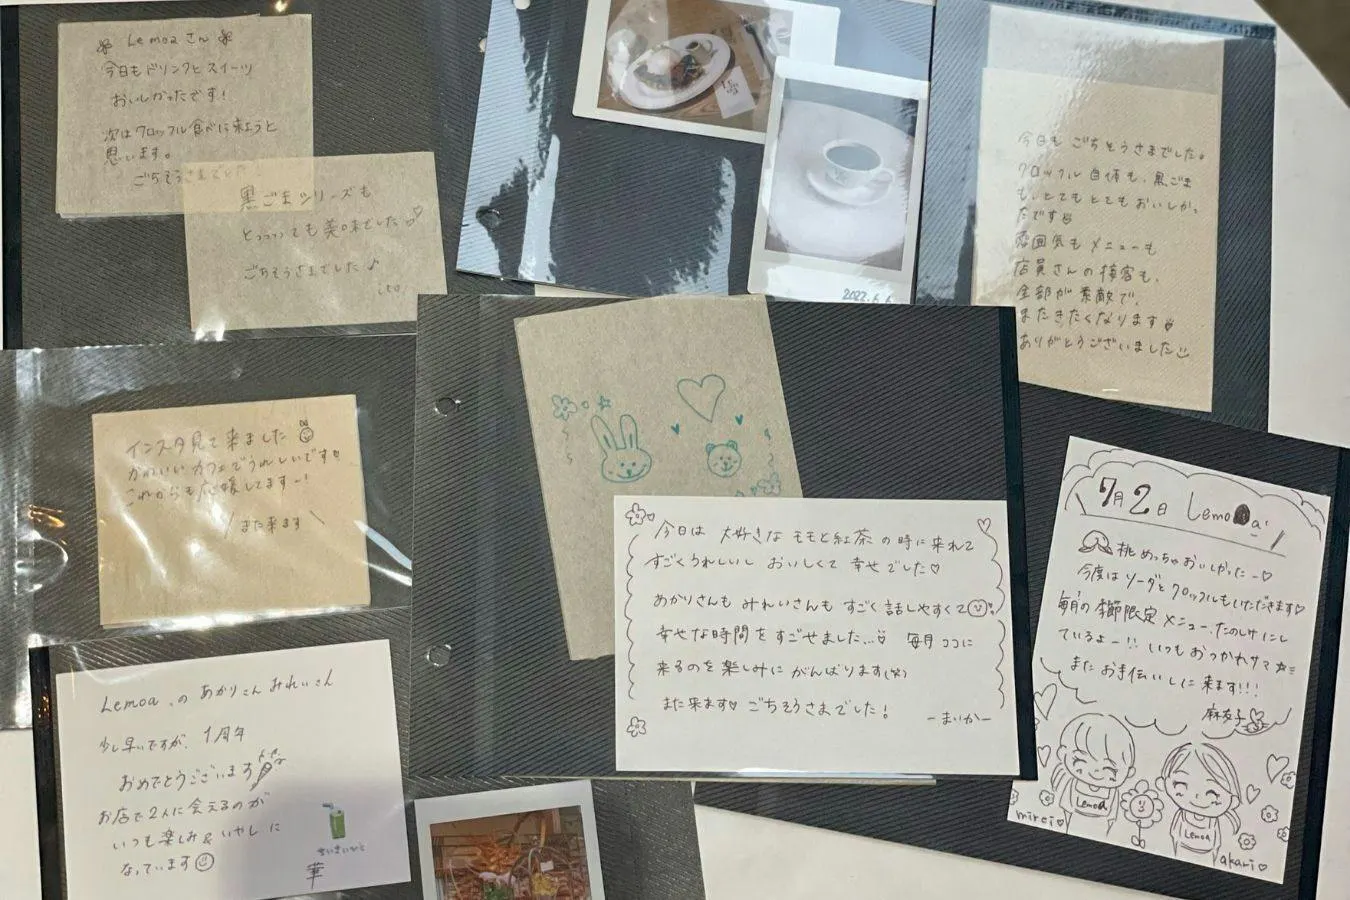 Lemoaさん
今日もドリンクとスイーツ
おいしかったです!
次はクロッフル食べに来ようと
思います。
ごちそうさまでした
黒ごまシリーズも
とっっっても美味でした
ごちそうさまでした♪
ito.
2022.6.6
今日も ごちそうさまでした。
クロッフル自体も、黒ごま
も、とてもとてもおいしかっ
たです
雰囲気も メニューも
店員さんの接客も、
全部が素敵で、
またきたくなります
ありがとうございました
インスタ見て来ました
かわいいカフェでうれしいです
これからも応援してますー!
また来ます
今日は 大好きな ももと紅茶 の時に来れて
すごくうれしいし おいしくて 幸せでした♡
あかりさんも みれいさんも すごく話しやすくて
幸せな時間をすごせました...♡ 毎月ココに
来るのを楽しみに がんばります
また来ます♡ ごちそうさまでした!
ーまいかー
7月2日 Lemoa
桃めっちゃおいしかったー♡
今度はソーダとクロッフルもいただきます♡
毎月の季節限定メニュー、たのしみにし
ているよー!! いつもおつかれサマ
またお手伝いしに来ます!!!
麻友子
Lemoa
mirei♡
Lemoa
akari♡
Lemoa.の あかりさん みれいさん
少し早いですが、1周年
おめでとうございます
お店で2人に会えるのが
いつも楽しみ&いやしに
なっています
華